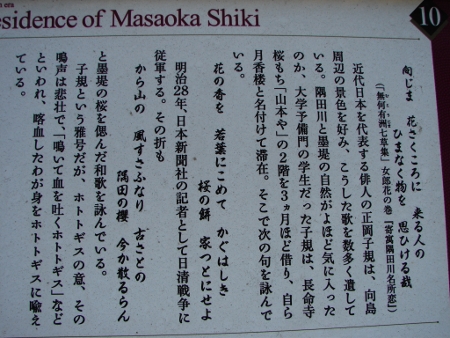 esidence of Masaoka Shiki
10
向じま 花さくころに 来る人の
ひまなく物を 思ひける哉
(「無何有洲七草集」女郎花の巻「寄寓隅田川名所恋」)
近代日本を代表する俳人の正岡子規は、向島
周辺の景色を好み、こうした歌を数多く遺して
いる。隅田川と墨堤の自然がよほど気に入った
のか、大学予備門の学生だった子規は、長命寺
桜もち「山本や」の2階を3ヵ月ほど借り、自ら
月香楼と名付けて滞在。そこで次の句を詠んで
いる。
花の香を 若葉にこめて かぐはしき
桜の餅 家つとにせよ
明治28年、日本新聞社の記者として日清戦争に
従軍する。その折も
から山の 風すさふなり 古さとの
隅田の櫻 今か散るらん
と墨堤の桜を偲んだ和歌を詠んでいる。
子規という雅号だが、ホトトギスの意、その
鳴声は悲壮で、「鳴いて血を吐くホトトギス」など
といわれ、喀血したわが身をホトトギスに喩え
ている。